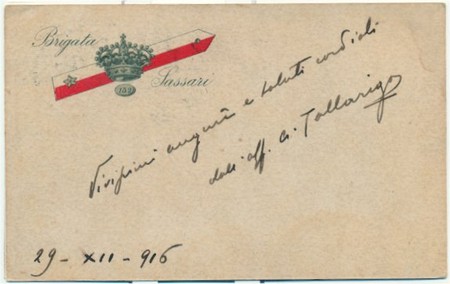 Brigata
152
Sassari
Vivissimi auguri e saluti cordiali
dall'aff. G. Tallarigo
29 - XII - 916